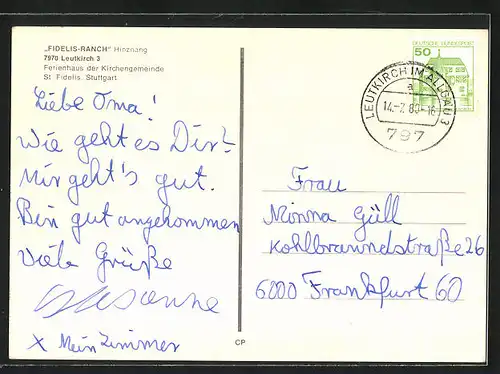 „FIDELIS-RANCH" Hinznang
7970 Leutkirch 3
Ferienhaus der Kirchengemeinde
St. Fidelis, Stuttgart
Liebe Oma!
Wie geht es Dir?
Mir geht's gut.
Bin gut angekommen
Viele Grüße
Susanne
x Mein Zimmer
CP
DEUTSCHE BUNDESPOST
50
LEUTKIRCH IM ALLGÄU 3
a
14.-7.80-16
797
Frau
Minna Güll
Kohlbranndstraße 26
6000 Frankfurt 60